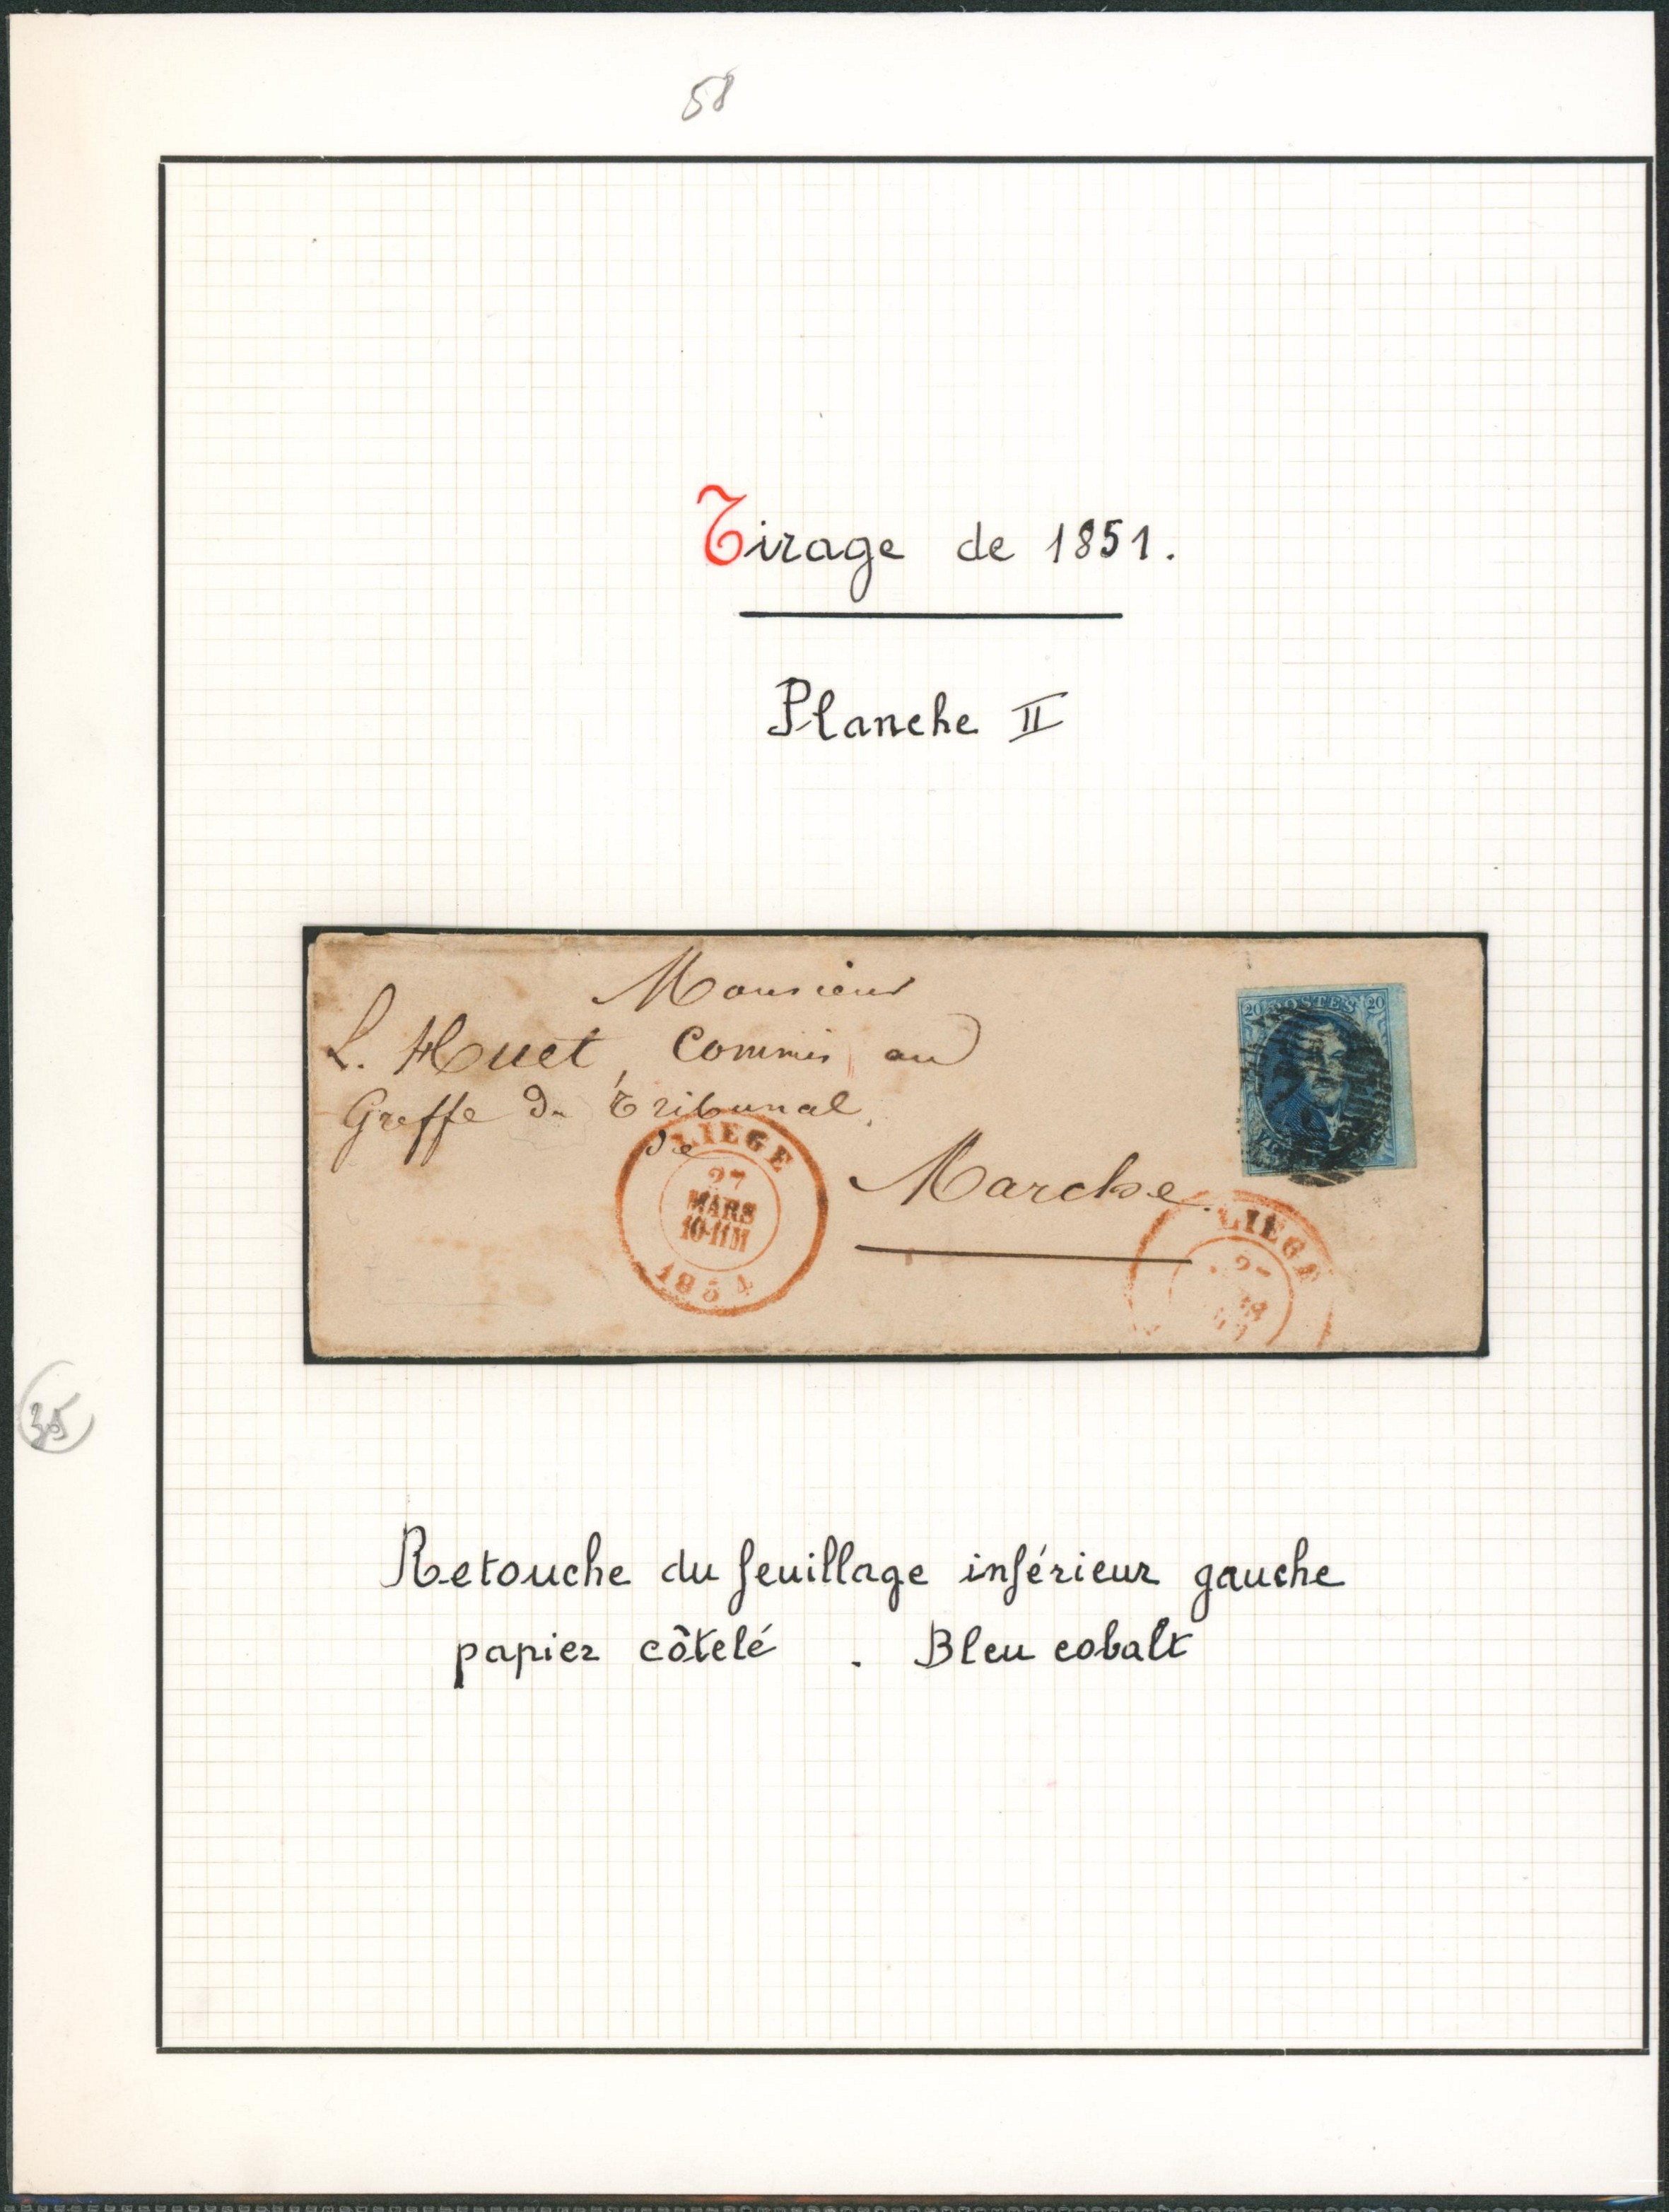 58
Tirage de 1851.
Planche II
Monsieur
L. Huet, Commis au
Greffe du Tribunal
de
Marche
20 POSTES 20
LIEGE
27
MARS
10-11M
1854
LIEGE
35
Retouche du feuillage inférieur gauche
papier côtelé . Bleu cobalt